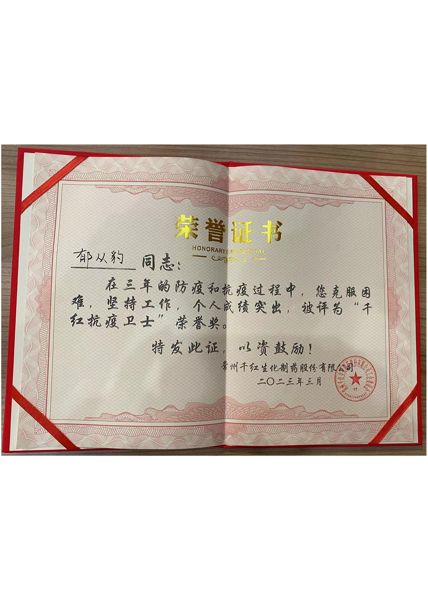 荣誉证书
HONORARY
郁从豹 同志：
在三年的防疫和抗疫过程中，您克服困
难，坚持工作，个人成绩突出，被评为“千
红抗疫卫士”荣誉奖。
特发此证，以资鼓励！
常州千红生化制药股份有限公司
二〇二三年三月